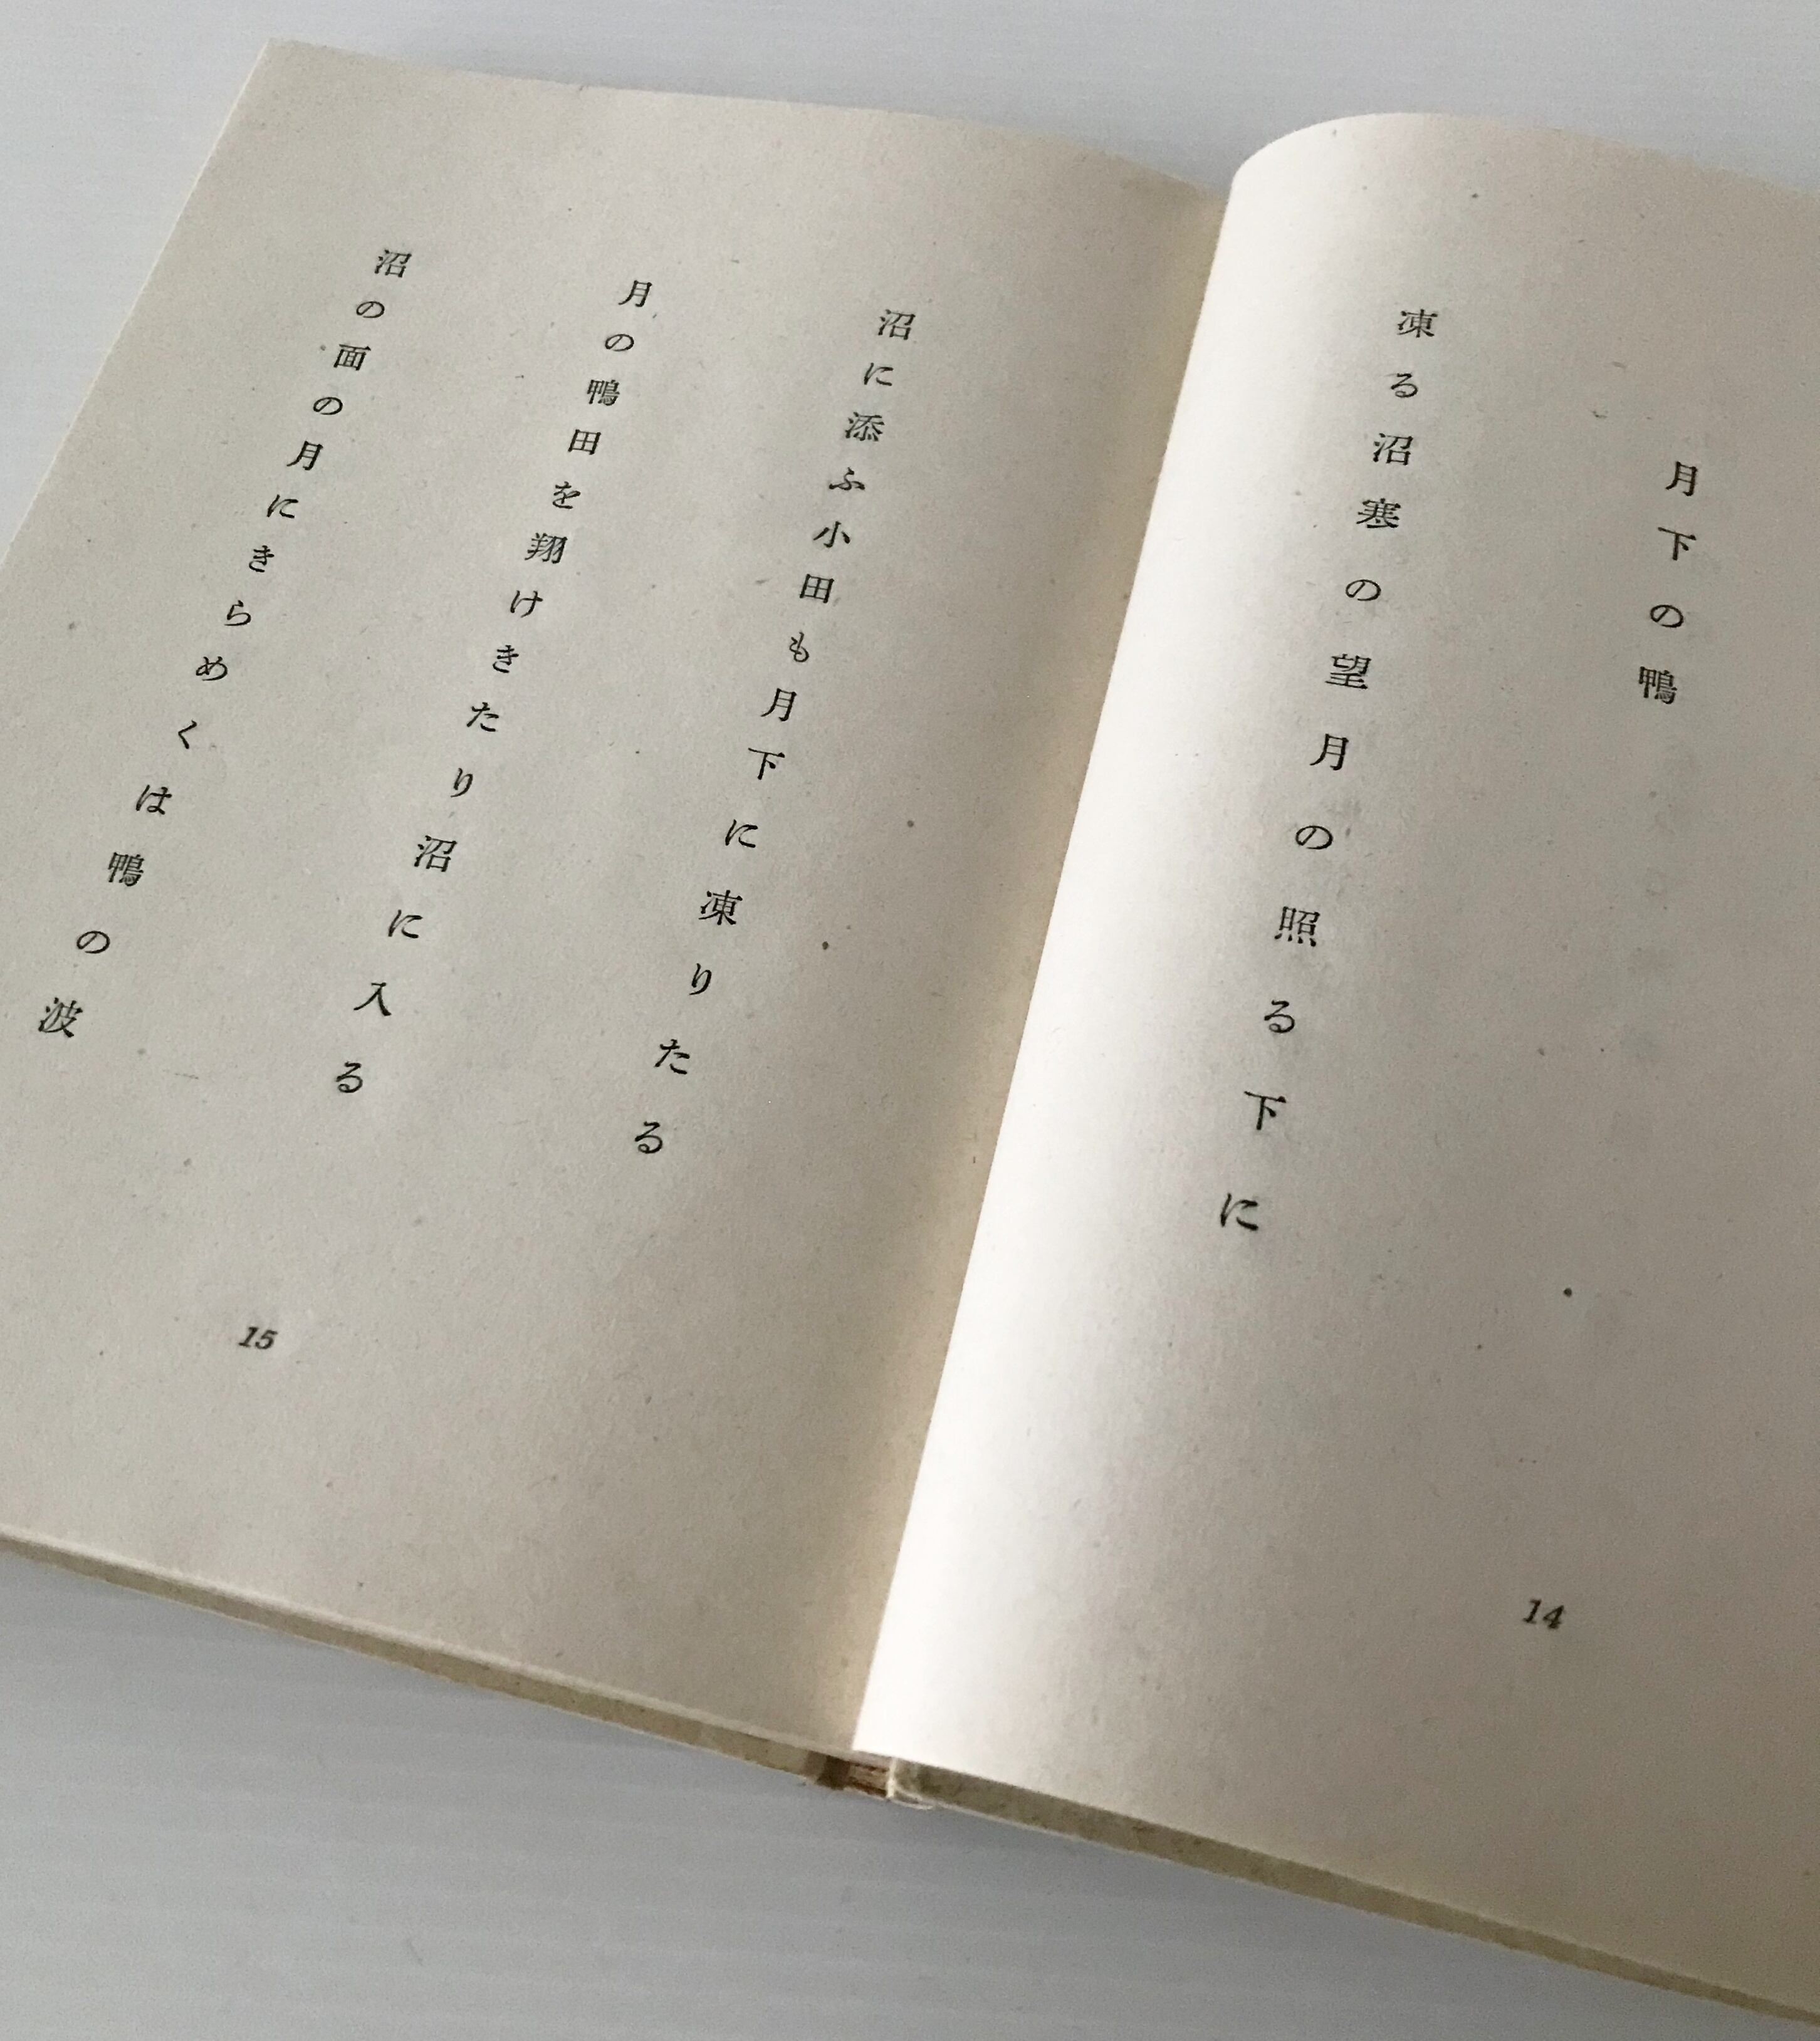 月下の鴨
凍る沼寒の望月の照る下に
14
沼に添ふ小田も月下に凍りたる
月の鴨田を翔けきたり沼に入る
沼の面の月にきらめくは鴨の波
15